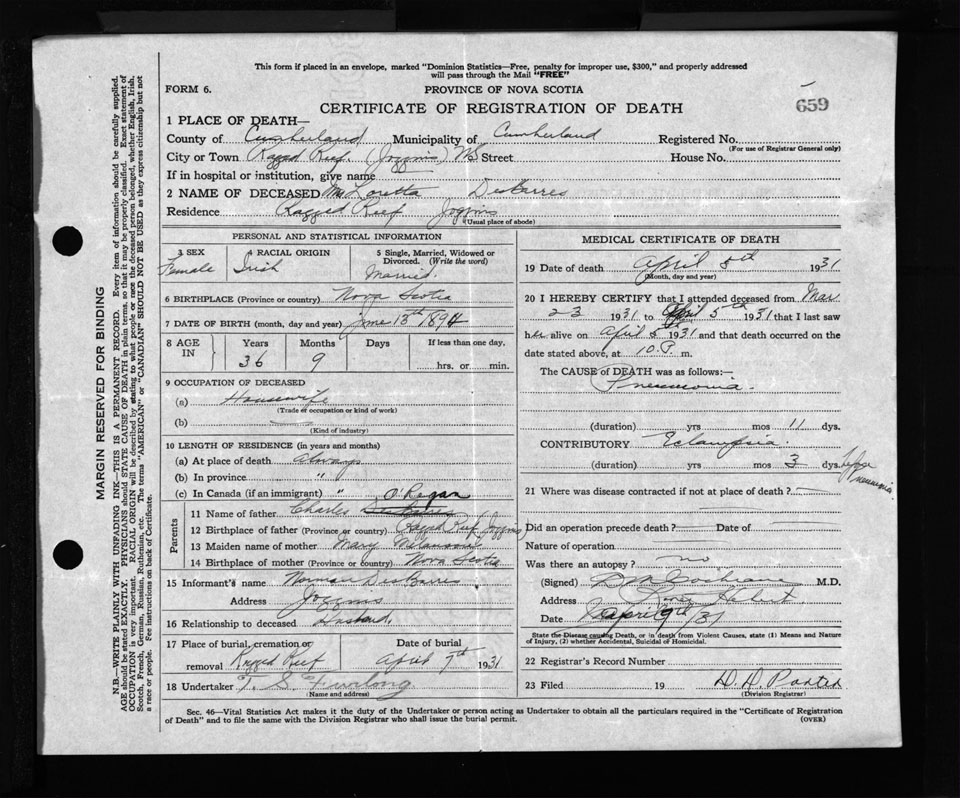 This form if placed in an envelope, marked "Dominion Statistics—Free, penalty for improper use, $300," and properly addressed
will pass through the Mail "FREE"
FORM 6.
PROVINCE OF NOVA SCOTIA
CERTIFICATE OF REGISTRATION OF DEATH
659
1 PLACE OF DEATH—
County of Cumberland Municipality of Cumberland Registered No.
(For use of Registrar General only)
City or Town Ragged Reef. (Joggins) NS Street House No.
If in hospital or institution, give name
2 NAME OF DECEASED Mrs Loretta DesBarres
Residence Ragged Reef Joggins
(Usual place of abode)
PERSONAL AND STATISTICAL INFORMATION
3 SEX 4 RACIAL ORIGIN 5 Single, Married, Widowed or
Divorced. (Write the word)
Female Irish Married.
6 BIRTHPLACE (Province or country) Nova Scotia
7 DATE OF BIRTH (month, day and year) June 13th 1894
8 AGE IN Years Months Days If less than one day,
36 9 hrs. or min.
9 OCCUPATION OF DECEASED
(a) Housewife
(Trade or occupation or kind of work)
(b) —
(Kind of industry)
10 LENGTH OF RESIDENCE (in years and months)
(a) At place of death always
(b) In province "
(c) In Canada (if an immigrant) " O'Regan
Parents
11 Name of father Charles DesBarres
12 Birthplace of father (Province or country) Ragged Reef Joggins
13 Maiden name of mother Mary Melanson
14 Birthplace of mother (Province or country) Nova Scotia
15 Informant's name Norman DesBarres
Address Joggins
16 Relationship to deceased Husband.
17 Place of burial, cremation or Date of burial
removal Ragged Reef April 7th 1931
18 Undertaker T. S. Furlong
(Name and address)
MEDICAL CERTIFICATE OF DEATH
19 Date of death April 5th 1931
(Month, day and year)
20 I HEREBY CERTIFY that I attended deceased from Mar
23 1931 to April 5th 1931 that I last saw
her alive on April 5th 1931 and that death occurred on the
date stated above, at 10 P. m.
The CAUSE of DEATH was as follows:—
Pneumonia.
(duration) yrs mos 11 dys.
CONTRIBUTORY Eclampsia.
(duration) yrs mos 3 dys. before Pneumonia
21 Where was disease contracted if not at place of death? —
Did an operation precede death? — Date of —
Nature of operation —
Was there an autopsy? no
(Signed) D M Cochrane M.D.
Address River Hebert.
Date April 9th/31
State the Disease causing Death, or in death from Violent Causes, state (1) Means and Nature
of Injury, (2) whether Accidental, Suicidal of Homicidal.
22 Registrar's Record Number
23 Filed 19
(Division Registrar)
Sec. 46—Vital Statistics Act makes it the duty of the Undertaker or person acting as Undertaker to obtain all the particulars required in the "Certificate of Registration
of Death" and to file the same with the Division Registrar who shall issue the burial permit.
(OVER)
MARGIN RESERVED FOR BINDING
N.B.—WRITE PLAINLY WITH UNFADING INK—THIS IS A PERMANENT RECORD. Every item of information should be carefully supplied.
AGE should be stated EXACTLY. PHYSICIANS should STATE CAUSE OF DEATH in plain terms, so that it may be properly classified. Exact statement of
OCCUPATION is very important. RACIAL ORIGIN will be described by stating to what people or race the deceased person belonged, whether English, Irish,
Scotch, French, German, Russian, Ruthenian, etc. The terms "AMERICAN" or "CANADIAN" SHOULD NOT BE USED as they express citizenship but not
a race or people. See instructions on back of Certificate.